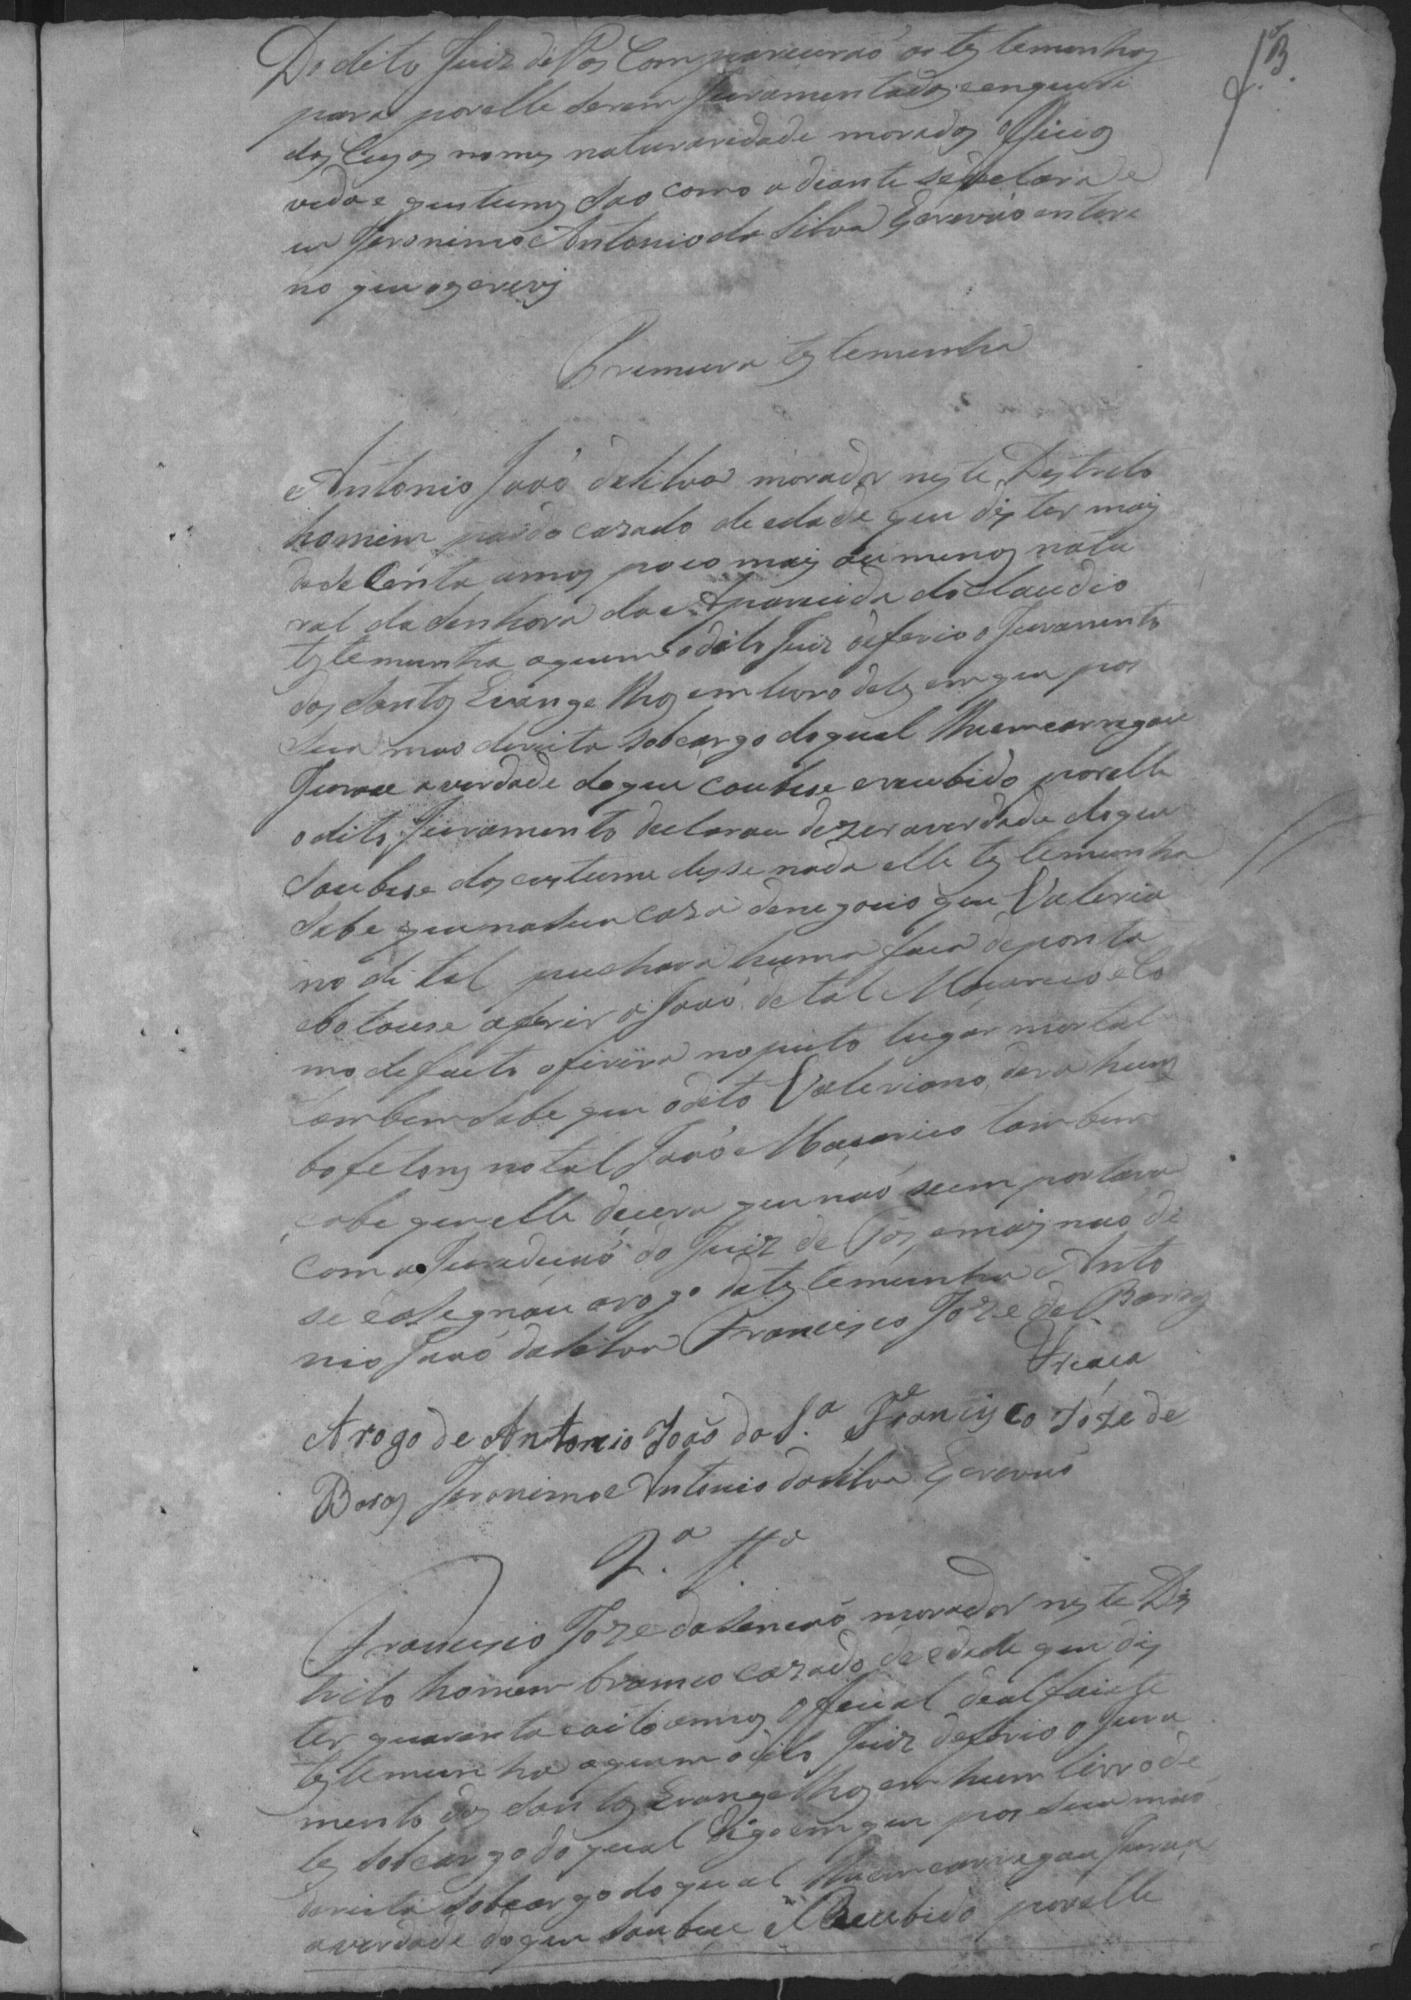 Do dito Juiz de Pas Comparecerão as testemunhas
para por elle serem Juramentadas e enqueri
das Cujos nomes naturaridade moradas officios
vida e custumes são como adiante se declara e
eu Jeronimo Antonio da Silva Escrivão entere
no que os escrevj
Primeira testemunha
Antonio João da Silva morador neste Destrito
homem pardo cazado de edade que dis ter mais
de secenta annos poco mais ou menos natu
ral da Senhora da Aparecida do Claudio
testemunha aquem o dito Juiz deferio o Juramento
dos Santos Evangelhos em livro deles em que pos
sua mão direita sob cargo do qual lhe encarregou
Jurase a verdade do que soubese e recebido por elle
o dito Juramento declarou dezer a verdade do que
soubese dos custume disse nada elle testemunha
sabe que na sua caza de negocio que Valeria
no de tal puchara huma faca de ponta
e botouse a ferir a João de tal Macario e Co
mo de facto o ferira no peito lugar mortal
tambem sabe que o dito Valeriano dera huns
bofetons no tal João Macario tambem
sabe que elle dicera que não se emportava
com a Juradição do Juiz de Pas e mais não di
se e asegnou arogo da testemunha Anto
nio João da Silva Francisco Joze de Barros
Arogo de Antonio João da S.ª Francisco Józe de
Baros Jeronimo Antonio da Silva Escrivão
2.ª tt.ª
Francisco Joze da morador neste Dis
trito homem branco cazado de edade que dis
ter quarenta e oito annos offecial de alfaiate
testemunha aquem o dito Juiz deferio o Jura
mento dos Santos Evangelhos em hum livro de
les sob cargo do qual digo em que pos sua mão
dereita sob cargo do qual lhe encarregou Jurase
a verdade do que soubese e Recebido por elle